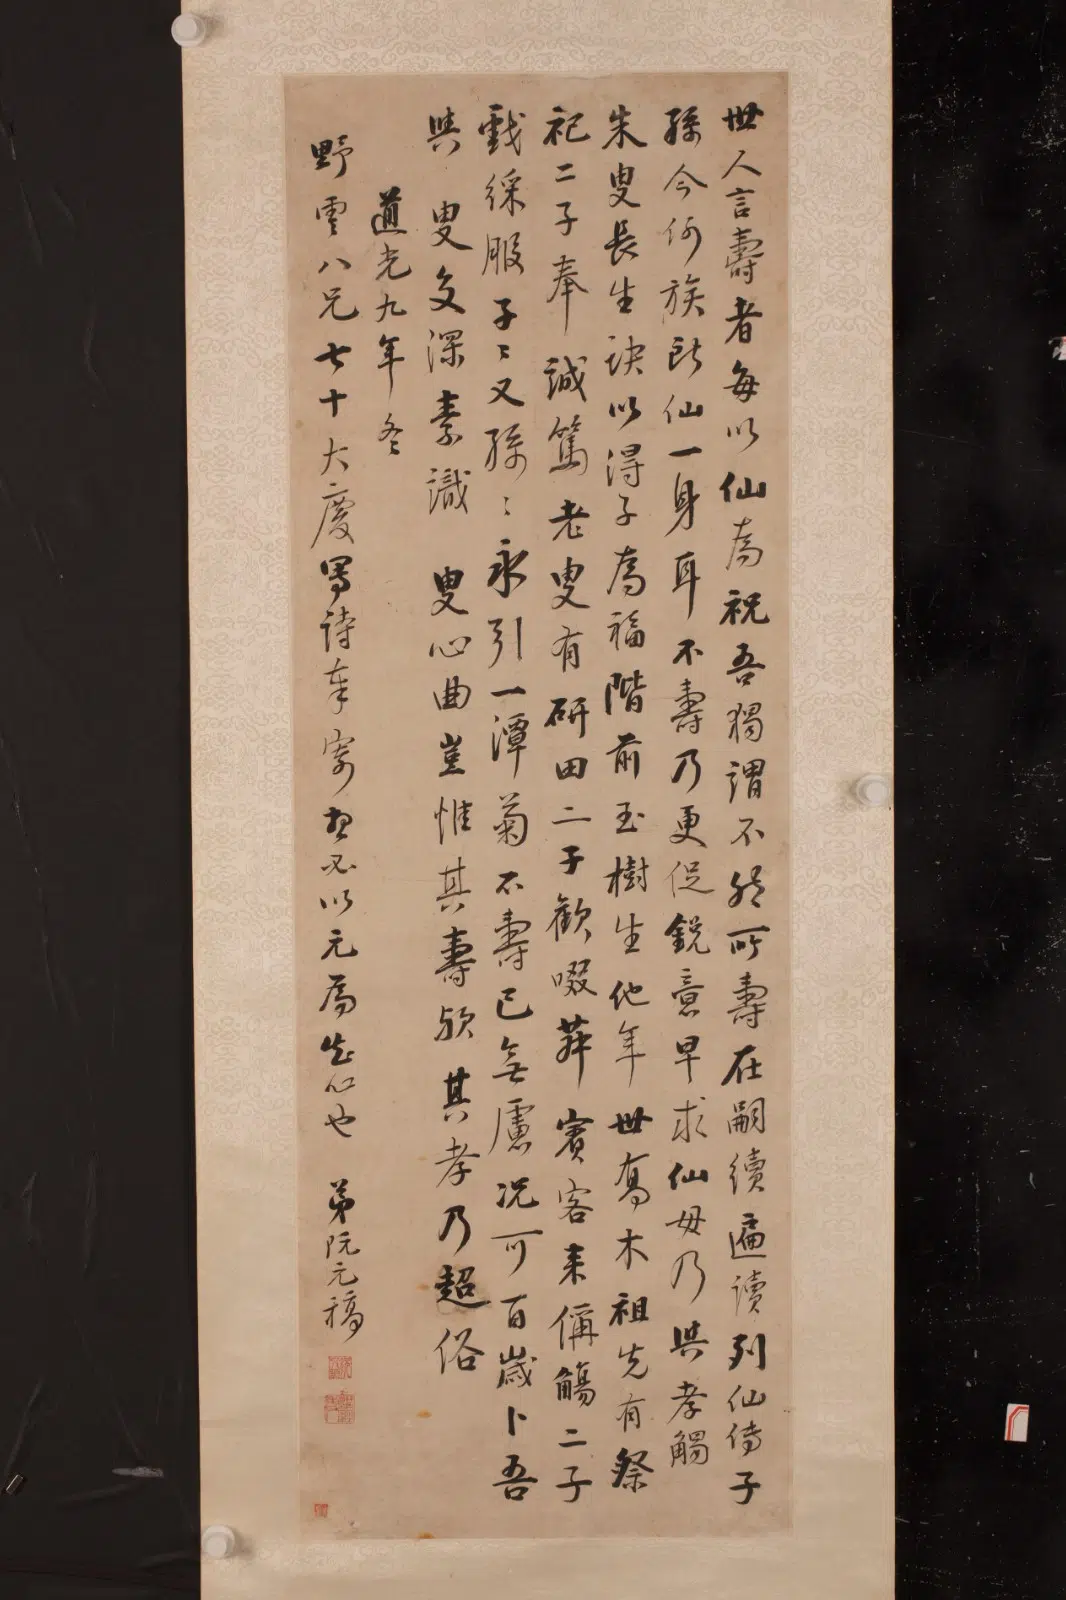 世人言壽者每以仙為祝吾獨謂不然所壽在嗣續遍讀列仙傳子
孫今何族此仙一身耳不壽乃更促銳意早求仙毋乃與孝觸
朱叟長生訣以得子為福階前玉樹生他年世喬木祖先有祭
祀二子奉誠篤老叟有研田二子歡啜菽賓客來偁觴二子
戲綵服子〻又孫〻永引一潭菊不壽已無慮況可百歲卜吾
與叟交深素識叟心曲豈惟其壽頌其孝乃超俗
道光九年冬
野雲八兄七十大慶寫詩奉寄想必以元為知心也 弟阮元稿